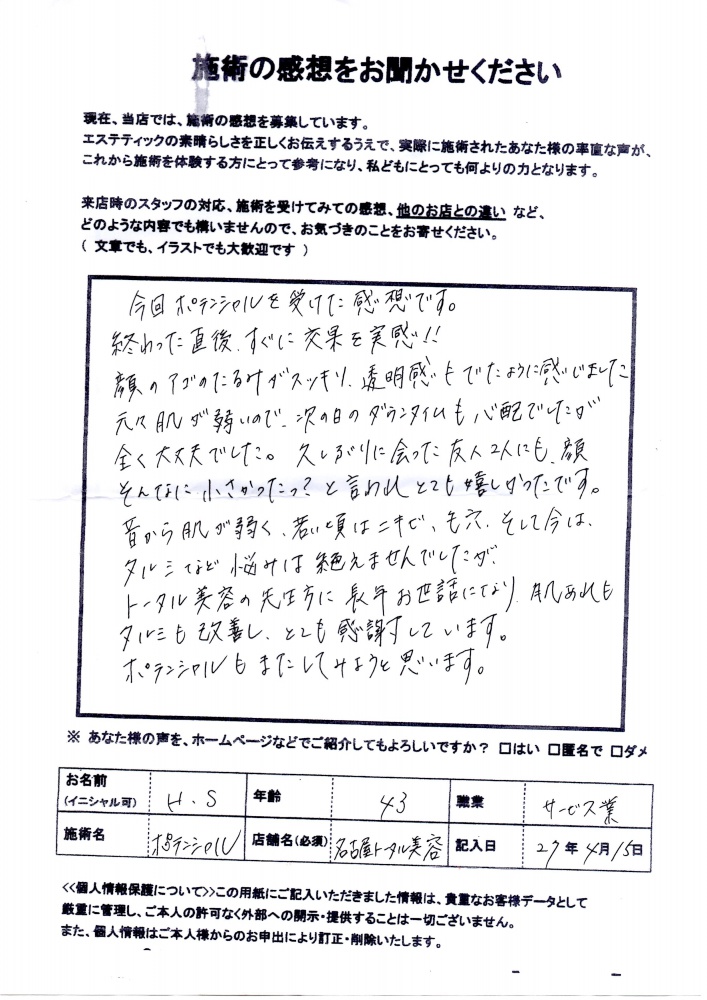 施術の感想をお聞かせください
現在、当店では、施術の感想を募集しています。
エステティックの素晴らしさを正しくお伝えするうえで、実際に施術されたあなた様の率直な声が、
これから施術を体験する方にとって参考になり、私どもにとっても何よりの力となります。
来店時のスタッフの対応、施術を受けてみての感想、他のお店との違い など、
どのような内容でも構いませんので、お気づきのことをお寄せください。
( 文章でも、イラストでも大歓迎です )
今回ポテンシャルを受けた感想です。
終わった直後、すぐに交果を実感!!
顔のアゴのたるみがスッキリ、透明感もでたように感じました
元々肌が弱いので、次の日のダウンタイムも心配でしたが
全く大丈夫でした。久しぶりに会った友人2人にも、顔
そんなに小さかったっ?と言われとても嬉しかったです。
昔から肌が弱く、若い頃はニキビ、毛穴、そして今は、
タルミなど悩みは絶えませんでしたが、
トータル美容の先生方に長年お世話になり、肌あれも
タルミも改善し、とても感謝しています。
ポテンシャルもまたしてみようと思います。
※ あなた様の声を、ホームページなどでご紹介してもよろしいですか? □はい □匿名で □ダメ
お名前 (イニシャル可) H.S 年齢 43 職業 サービス業
施術名 ポテンシャル 店舗名(必須) 名古屋トータル美容 記入日 27年4月15日
<<個人情報保護について>>この用紙にご記入いただきました情報は、貴重なお客様データとして
厳重に管理し、ご本人の許可なく外部への開示・提供することは一切ございません。
また、個人情報はご本人様からのお申出により訂正・削除いたします。